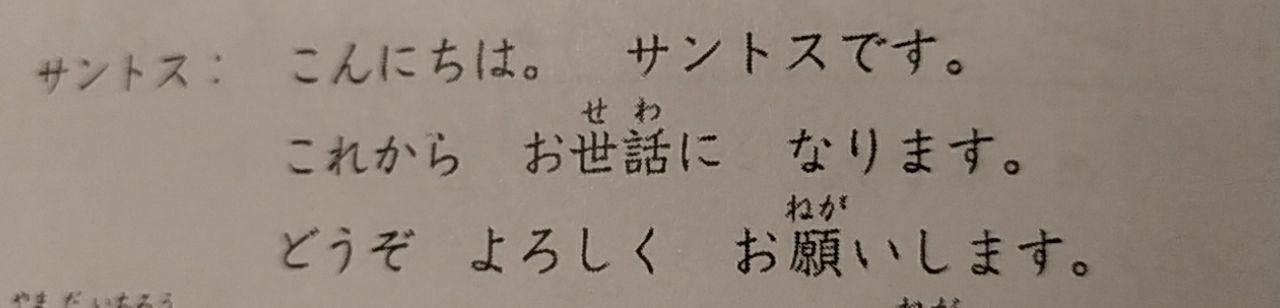 サントス： こんにちは。 サントスです。
せ わ
これから お世話に なります。
ねが
どうぞ よろしく お願いします。
やまだいちろう
ねが